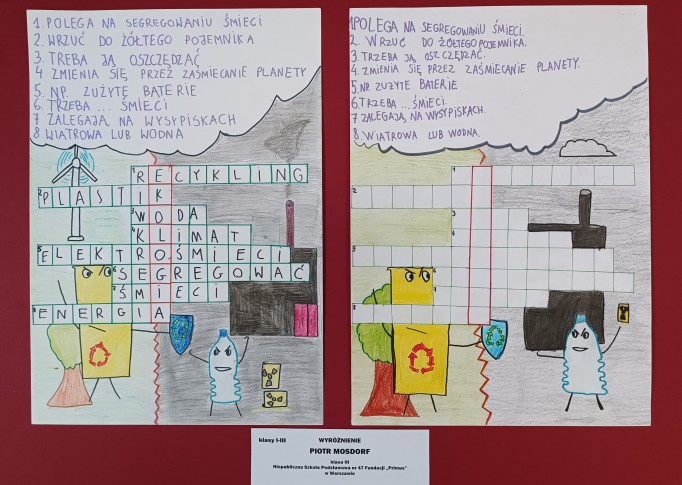 1. POLEGA NA SEGREGOWANIU ŚMIECI
2. WRZUĆ DO ŻÓŁTEGO POJEMNIKA
3. TREBA JĄ OSZCZĘDZAĆ
4 ZMIENIA SIĘ PRZEZ ZAŚMIECANIE PLANETY
5. NP. ZUŻYTE BATERIE
6. TRZEBA ... ŚMIECI
7 ZALEGAJĄ NA WYSYPISKACH
8 WIATROWA LUB WODNA
1 RECYKLING
2 PLASTIK
3 WODA
4 KLIMAT
5 ELEKTROŚMIECI
6 SEGREGOWAĆ
7 ŚMIECI
8 ENERGIA
1 POLEGA NA SEGREGOWANIU ŚMIECI.
2. WRZUĆ DO ŻÓŁTEGO POJEMNIKA.
3. TRZEBA JĄ OSZCZĘDZAĆ.
4. ZMIENIA SIĘ PRZEZ ZAŚMIECANIE PLANETY.
5. NP. ZUŻYTE BATERIE
6. TRZEBA ... ŚMIECI.
7 ZALEGAJĄ NA WYSYPISKACH.
8. WIATROWA LUB WODNA.
1
2
3
4
5
6
7
8
klasy I-III WYRÓŻNIENIE
PIOTR MOSDORF
klasa III
Niepubliczna Szkoła Podstawowa nr 47 Fundacji „Primus"
w Warszawie